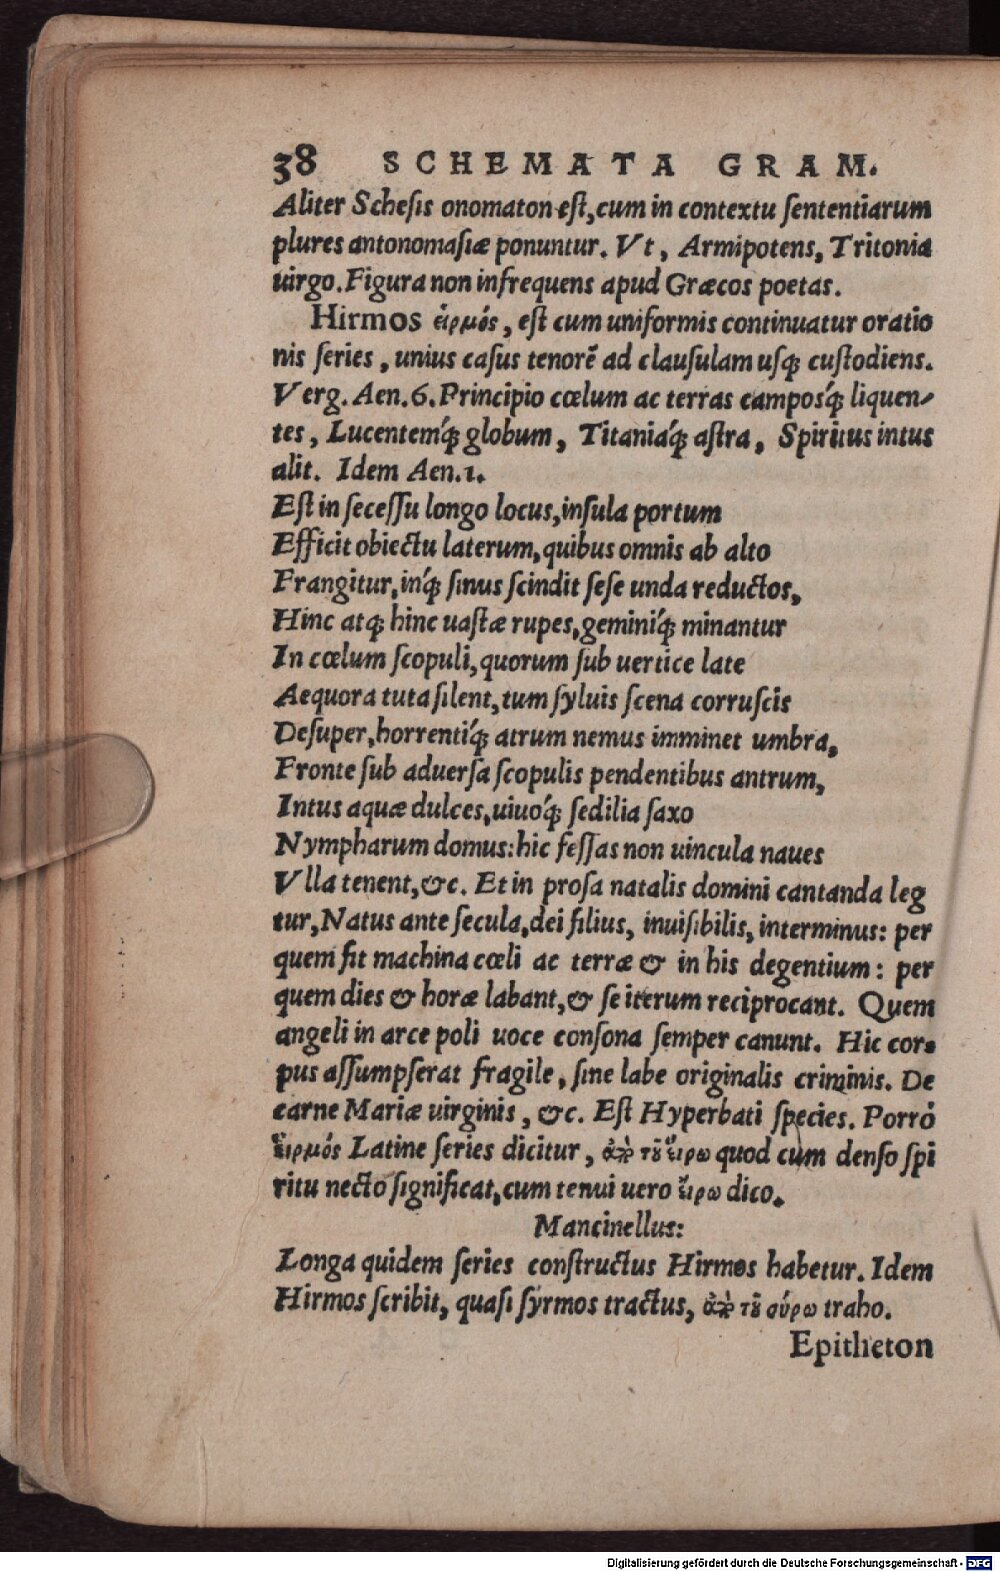 38 SCHEMATA GRAM.
Aliter Schesis onomaton est, cum in contextu sententiarum
plures antonomasiæ ponuntur. Vt, Armipotens, Tritonia
uirgo. Figura non infrequens apud Græcos poetas.
Hirmos εἱρμός, est cum uniformis continuatur oratio
nis series, unius casus tenorẽ ad clausulam usq; custodiens.
Verg. Aen. 6. Principio cœlum ac terras camposq́; liquen-
tes, Lucentemq́; globum, Titaniaq́; astra, Spiritus intus
alit. Idem Aen. 1.
Est in secessu longo locus, insula portum
Efficit obiectu laterum, quibus omnis ab alto
Frangitur, inq́; sinus scindit sese unda reductos,
Hinc atq; hinc uastæ rupes, geminiq́; minantur
In cœlum scopuli, quorum sub uertice late
Aequora tuta silent, tum syluis scena corruscis
Desuper, horrentiq́; atrum nemus imminet umbra,
Fronte sub aduersa scopulis pendentibus antrum,
Intus aquæ dulces, uiuoq́; sedilia saxo
Nympharum domus: hic fessas non uincula naues
Vlla tenent, &c. Et in prosa natalis domini cantanda leg
tur, Natus ante secula, dei filius, inuisibilis, interminus: per
quem fit machina cœli ac terræ & in his degentium: per
quem dies & horæ labant, & se iterum reciprocant. Quem
angeli in arce poli uoce consona semper canunt. Hic cor-
pus assumpserat fragile, sine labe originalis criminis. De
carne Mariæ uirginis, &c. Est Hyperbati species. Porrò
εἱρμός Latine series dicitur, ἀπὸ τοῦ εἵρω quod cum denso spi
ritu necto significat, cum tenui uero εἴρω dico.
Mancinellus:
Longa quidem series constructus Hirmos habetur. Idem
Hirmos scribit, quasi syrmos tractus, ἀπὸ τοῦ σύρω traho.
Epitheton
Digitalisierung gefördert durch die Deutsche Forschungsgemeinschaft - DFG